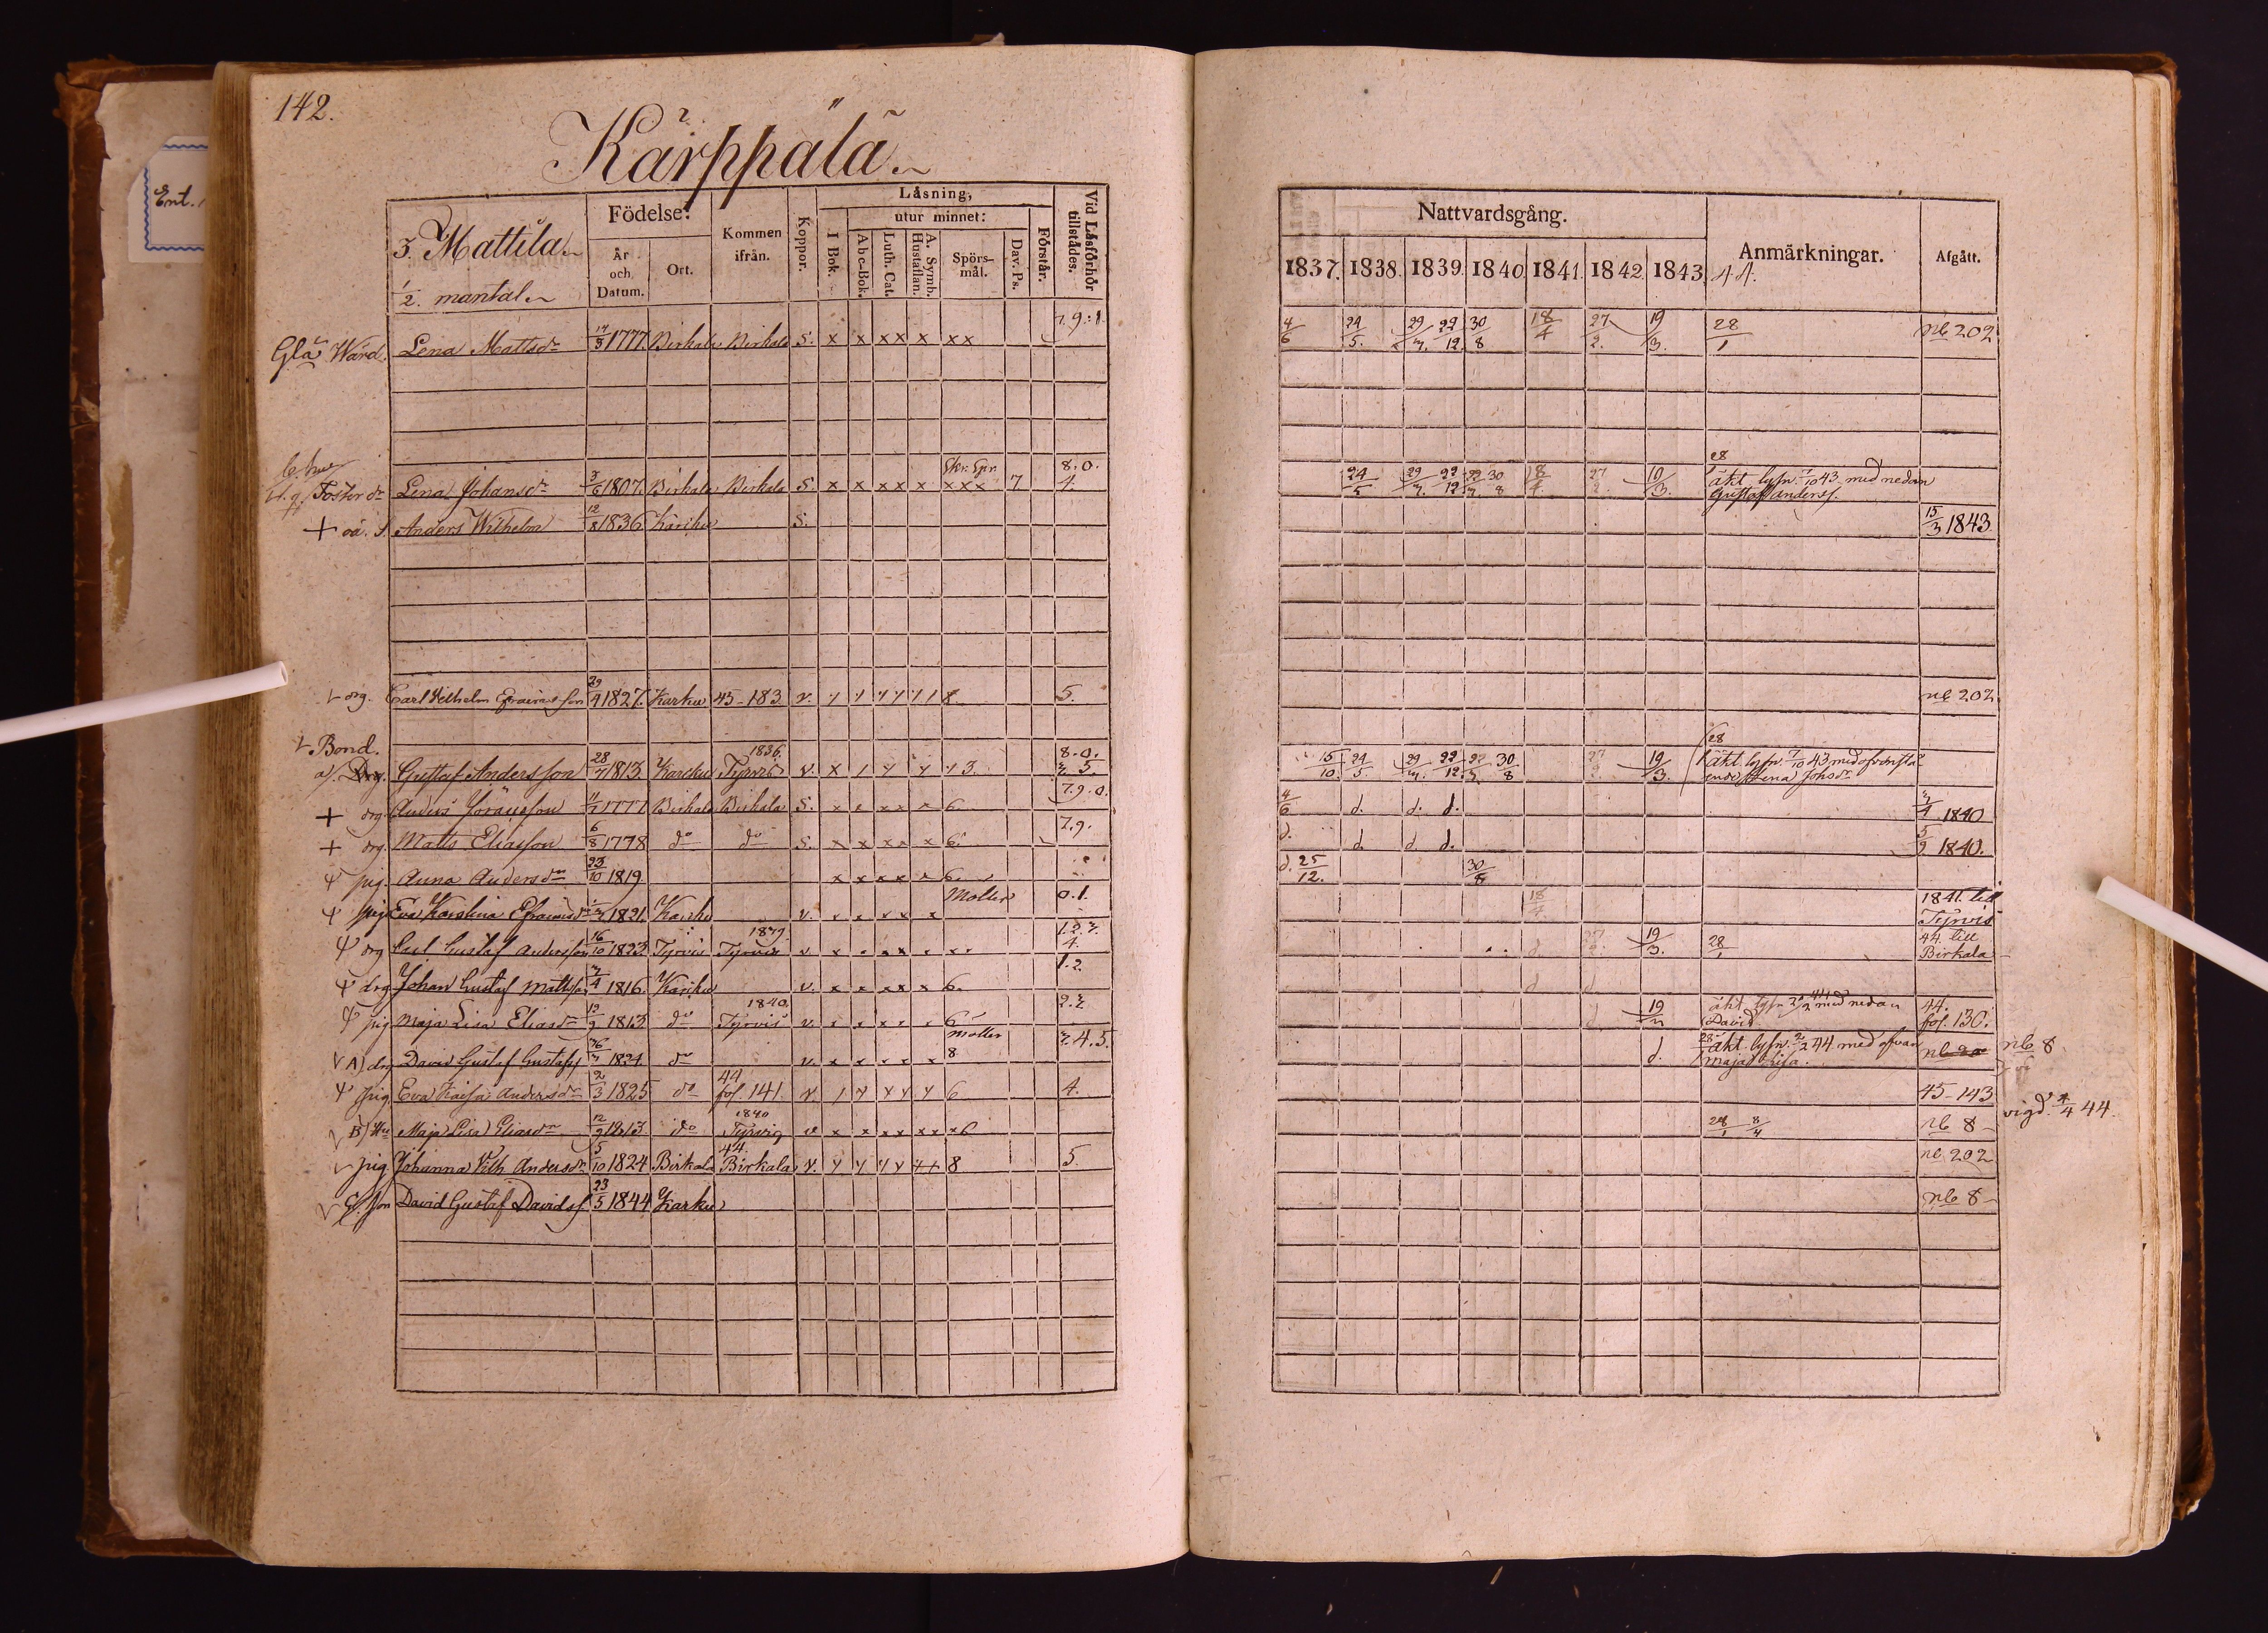 142.
Kärppälä
Ent.
3. Mattila
1/2. mantal
Födelse:
År och Datum.
Ort.
Kommen ifrån.
Koppor.
Läsning,
I Bok.
utur minnet:
Abc-Bok.
Luth. Cat.
A. Symb. Hustaflan.
Spörs-mål.
Dav. Ps.
Förstår.
Vid Läsförhör tillstädes.
Nattvardsgång.
1837. 1838. 1839. 1840. 1841. 1842. 1843. 44.
Anmärkningar.
Afgått.
Gla Wärd. Lena Mattsdr 1777 Birkala Birkala S. x x xx x xx 7.9.1. 4/6 24/5. 29/7. 22/12. 30/8 18/4 27/2. 19/3. 28/1 nb 202
Foster dr Lena Johansdr 3/6 1807. Birkala Birkala S. x x xx x xxx 7 8.0. 4. 24/5 29/7. 22/12 30/8 18/4. 19/3. 28/1 äkt. lysn. 7/10 43 med nedan Gustaf Anderss.
+ oä. S. Anders Wilhelm 12/8 1836 Karku S. 15/3 1843
drg. Carl Vilhelm Efraimsson 29/4 1827. Karku 45-183 v. 8 5. nb 202.
Bond.
a/. Drg. Gustaf Andersson 28/7 1813 Karcku 1836. Tyrvis v. 8.0. 3.5. 15/10. 24/5 29/7. 22/12. 30/8 19/3. 28 äkt. lysn. 7/10 43 med ofvanstående Lena Johsdr
+ drg. Anders 1777 Birkala Birkala S. 6. 7.9.0. 4/6 d. d. d. 1840
+ drg. Matts Eliasson 6/8 1778 do do S. x x xx x 6. 7.9. d. d. d. d. 1840.
pig. Anna Andersdr 23/10 1819 x x xx x 6. d. 25/12. 30/8
pig Eva Karolina Efraimsdr 1821. Karku v. Moller 0.1. 18/4 1841. till Tyrvis
drg Carl Gustaf Andersson 16/10 1823 Tyrvis 1839 Tyrvis v 1.2.3. 4. 19/3. 28/1 44. till Birkala
drg Johan Gustaf Mattsson 1816. Karku v. x x xx x 6. 1.2 d d
pig Maja Lisa Eliasdr 12/9 1813 do 1840. Tyrvis v. 6 2.3. d 19/3 äkt. lysn med nedan David 44. fol. 130.
A) drg David Gustaf Gustafss 1824 do v. Moller 8 3.4.5. d. 28/1 äkt. lysn. 2/2 44 med ofvan Maja Lisa. nb 8
pig. Eva Kaisa Andersdr 2/3 1825 do 44 fol. 141. v. 6 4. 45-143
B) Maja Lisa Eliasdr 12/9 1813 do 1840 Tyrvis v x x xx xx x6 28/1 8/4 nb 8 vigd. 4/4 44.
pig. Johanna Vilh. Andersdr 5/10 1824 Birkala 44. Birkala v. 8 5 nb 202
C. Son David Gustaf Davidsf 23/5 1844 Karku nb 8